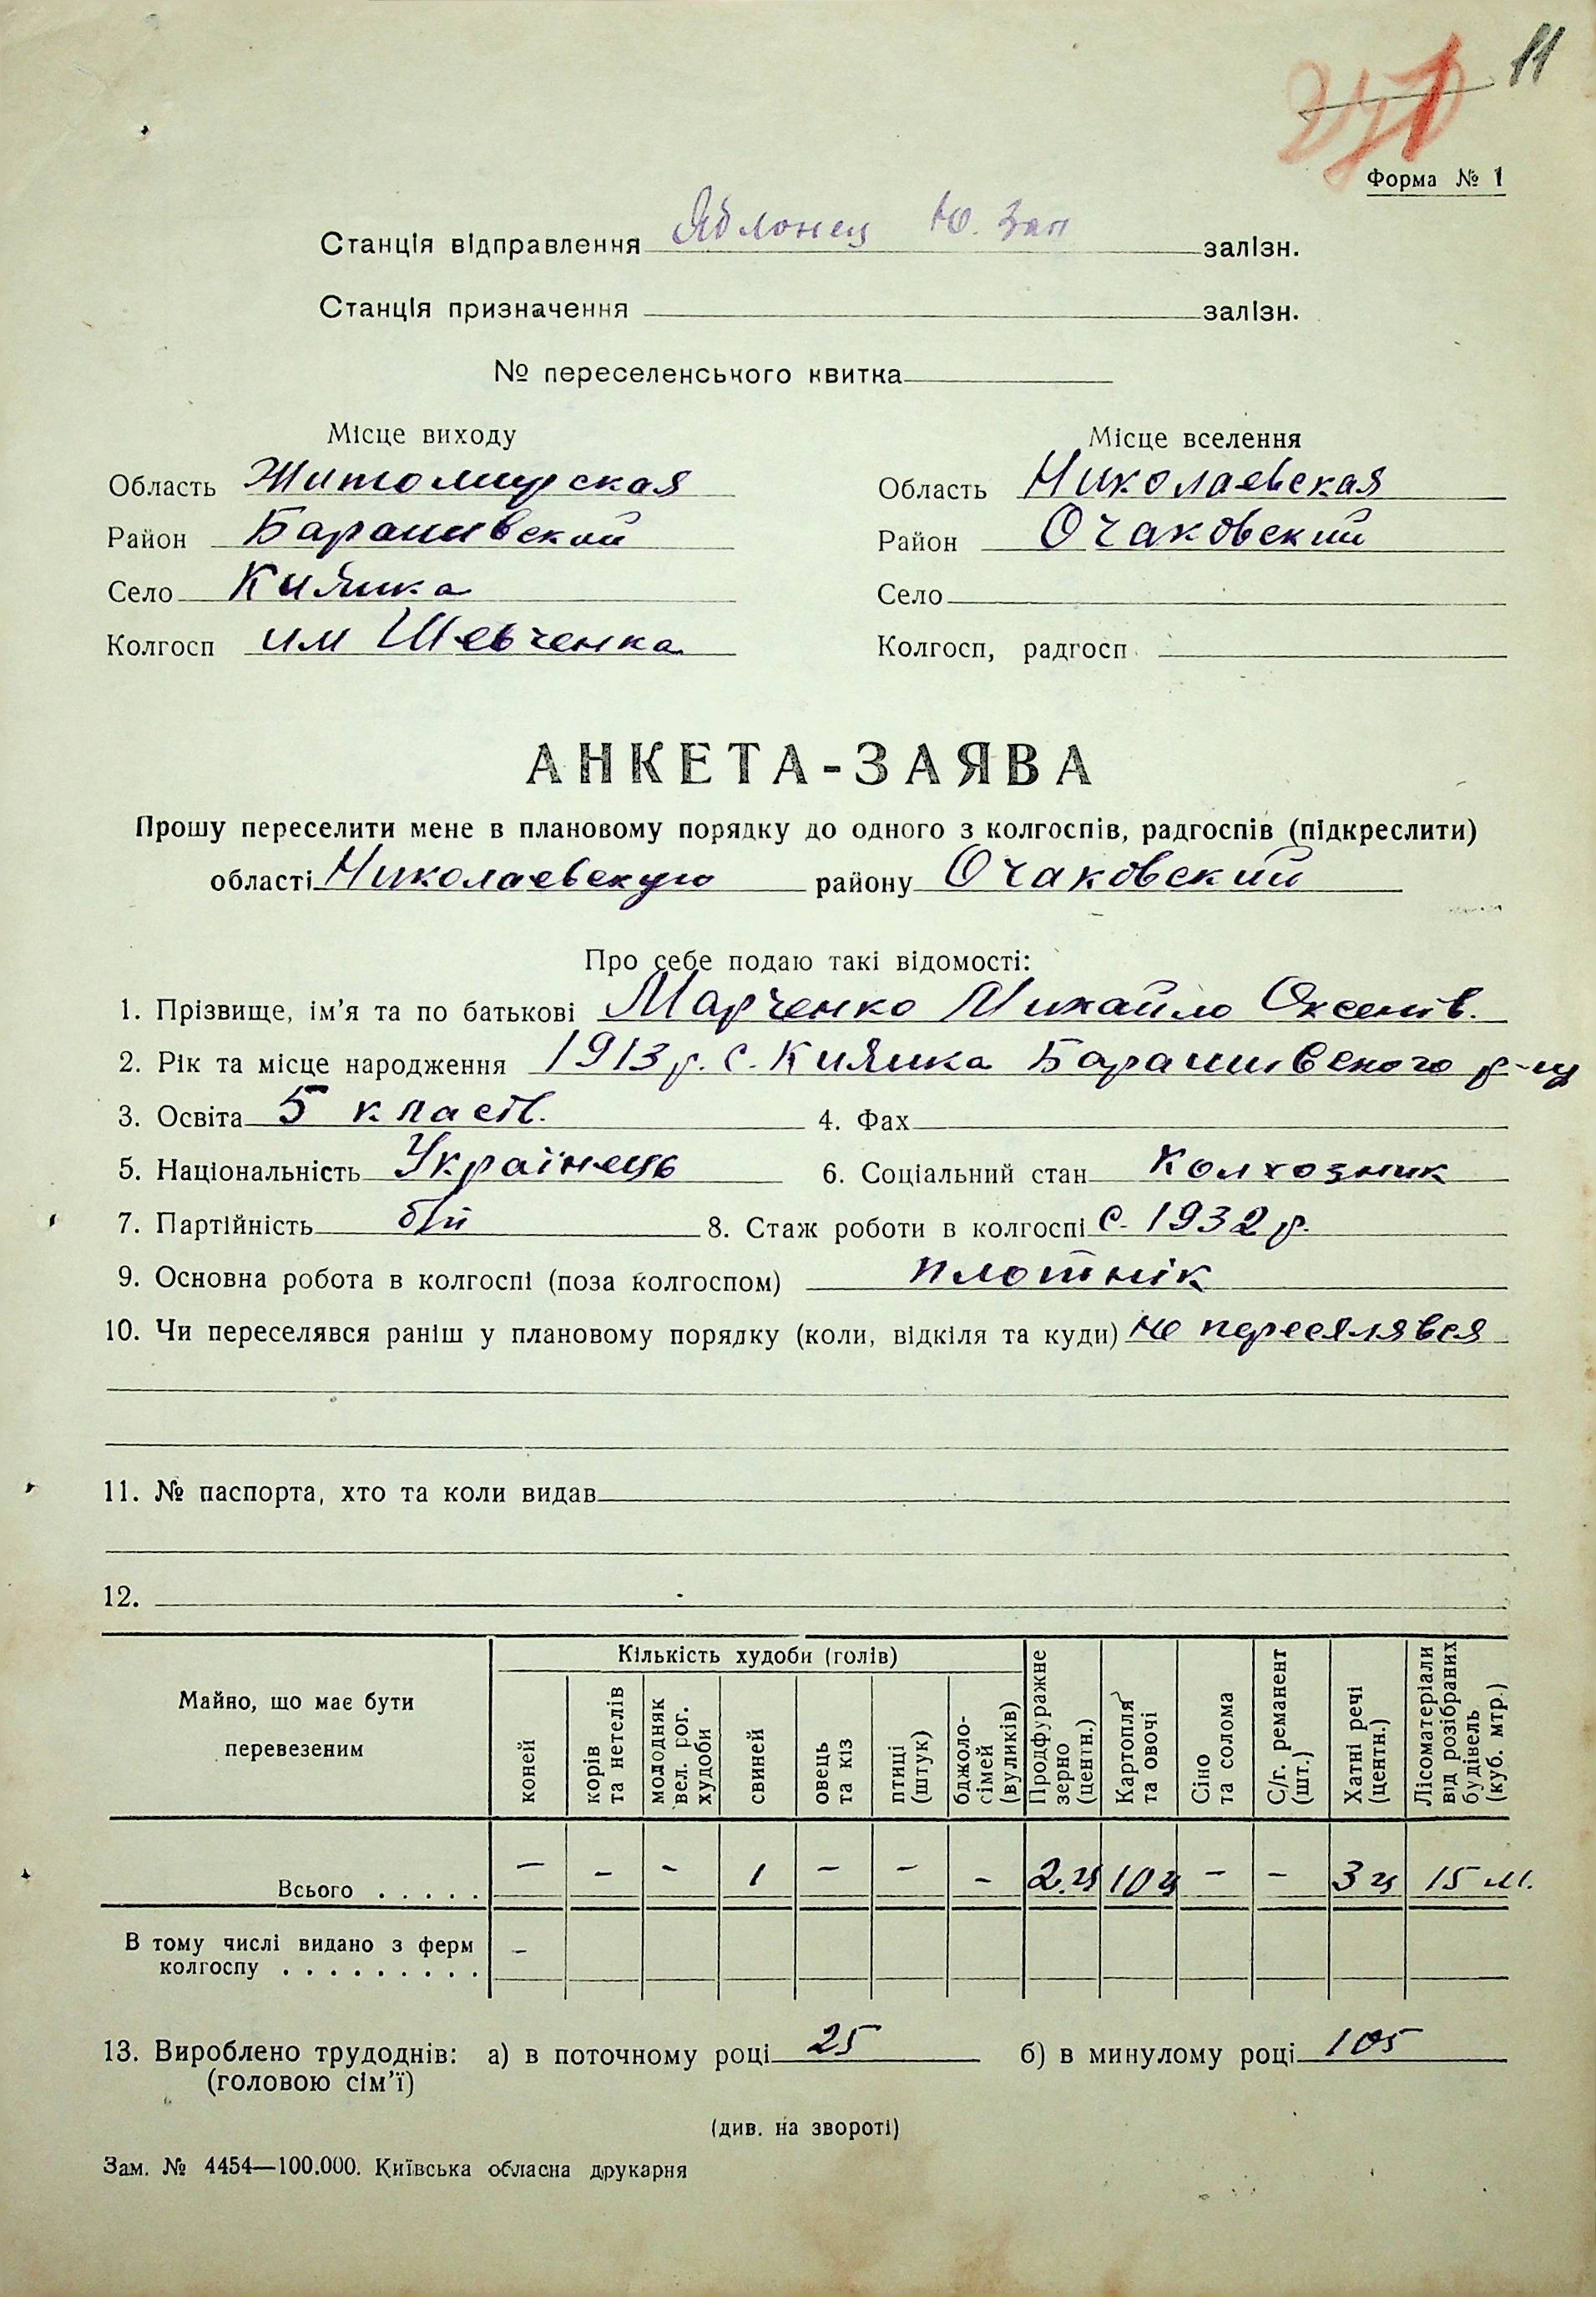 11
Форма № 1
Станція відправлення Яблонец Ю. Зап залізн.
Станція призначення залізн.
№ переселенського квитка
Місце виходу
Область Житомирская
Район Барашивский
Село Киянка
Колгосп им Шевченка
Місце вселення
Область Николаевская
Район Очаковский
Село
Колгосп, радгосп
АНКЕТА-ЗАЯВА
Прошу переселити мене в плановому порядку до одного з колгоспів, радгоспів (підкреслити)
області Николаевскую району Очаковский
Про себе подаю такі відомості:
1. Прізвище, ім'я та по батькові Марченко Михайло Оксенів.
2. Рік та місце народження 1913 р. с. Киянка Барашивского р-ну
3. Освіта 5 класів. 4. Фах
5. Національність Українець 6. Соціальний стан Колхозник
7. Партійність б/п 8. Стаж роботи в колгоспі с 1932 р.
9. Основна робота в колгоспі (поза колгоспом) плотнік
10. Чи переселявся раніш у плановому порядку (коли, відкіля та куди) не переселявся
11. № паспорта, хто та коли видав
12.
Майно, що має бути перевезеним
Кількість худоби (голів)
коней
корів та нетелів
молодняк вел. рог. худоби
свиней
овець та кіз
птиці (штук)
бджоло-сімей (вуликів)
Продфуражне зерно (центн.)
Картопля та овочі
Сіно та солома
С/г. реманент (шт.)
Хатні речі (центн.)
Лісоматеріали від розібраних будівель (куб. мтр.)
Всього . . . . . – – – 1 – – – 2.ц 10ц – – 3ц 15 м.
В тому числі видано з ферм –
колгоспу . . . . . . . . .
13. Вироблено трудоднів: а) в поточному році 25 б) в минулому році 105
(головою сім'ї)
(див. на звороті)
Зам. № 4454—100.000. Київська обласна друкарня